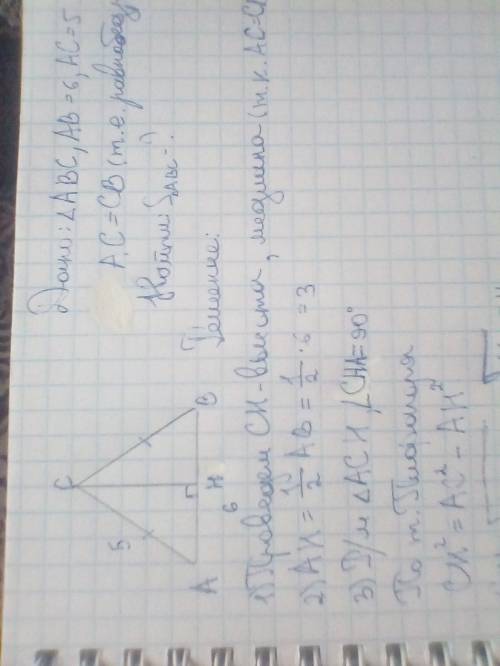 Дано: ΔABC, AB=6, AC=5
AC=CB (т.е. равнобед
Найти: S_ABC-?
Решение:
C
5
A
H
B
6
1) Проведем CH-высота, медиана (т.к. AC=C
2) AH = 1/2 AB = 1/2 · 6 = 3
3) П/м ΔACH ∠CHA=90°
По т. Пифагора
CH² = AC² - AH²